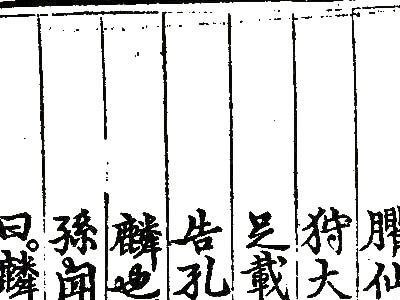 臞仙
狩大
足載
告孔
麟也
孫聞
曰麟